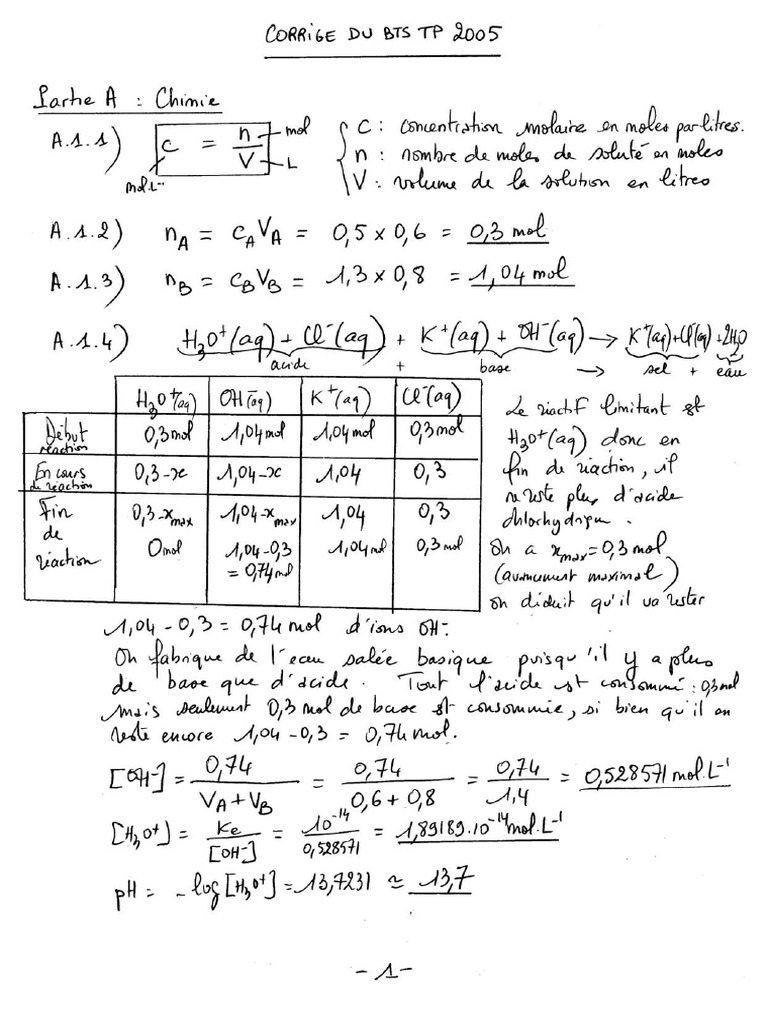 CORRIGE DU BTS TP 2005
Partie A : Chimie
A.1.1) C = n/V mol L mol.L⁻¹
C : concentration molaire en moles par litres.
n : nombre de moles de soluté en moles
V : volume de la solution en litres
A.1.2) nA = cAVA = 0,5 x 0,6 = 0,3 mol
A.1.3) nB = cBVB = 1,3 x 0,8 = 1,04 mol
A.1.4) H₃O⁺(aq) + Cl⁻(aq) + K⁺(aq) + OH⁻(aq) → K⁺(aq)+Cl⁻(aq)+2H₂O
acide + base → sel + eau
H₃O⁺(aq) OH⁻(aq) K⁺(aq) Cl⁻(aq)
Début réaction 0,3mol 1,04mol 1,04mol 0,3mol
En cours de réaction 0,3-x 1,04-x 1,04 0,3
Fin de réaction 0,3-xmax 1,04-xmax 1,04 0,3
0mol 1,04-0,3 = 0,74mol 1,04mol 0,3mol
Le réactif limitant est
H₃O⁺(aq) donc en
fin de réaction, il
reste plus d'acide
chlorhydrique.
On a xmax=0,3mol
(avancement maximal)
on déduit qu'il va rester
1,04-0,3 = 0,74mol d'ions OH⁻.
On fabrique de l'eau salée basique puisqu'il y a plus
de base que d'acide. Tout l'acide est consommé : 0,3mol
mais seulement 0,3 mol de base est consommée, si bien qu'il en
reste encore 1,04-0,3 = 0,74mol.
[OH⁻] = 0,74/(VA+VB) = 0,74/(0,6+0,8) = 0,74/1,4 = 0,528571 mol.L⁻¹
[H₃O⁺] = Ke/[OH⁻] = 10⁻¹⁴/0,528571 = 1,89189.10⁻¹⁴mol.L⁻¹
pH = -log[H₃O⁺] = 13,7231 ≃ 13,7
-1-